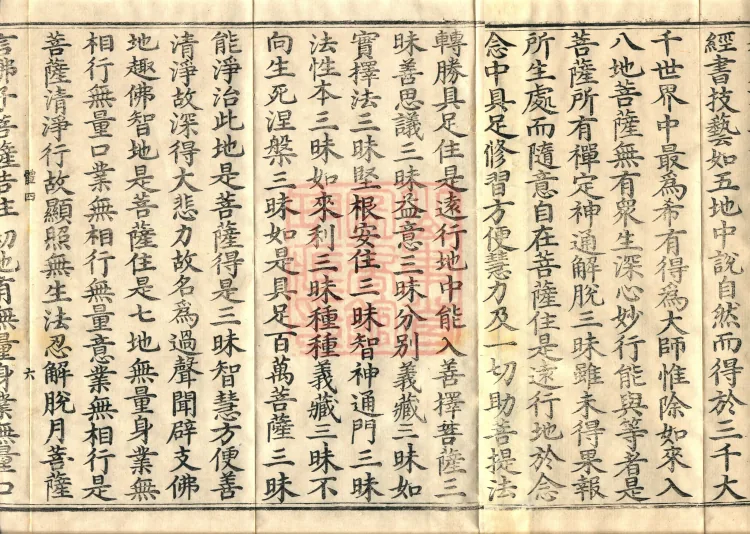 經書技藝如五地中說自然而得於三千大
千世界中最爲希有得爲大師惟除如來入
八地菩薩無有衆生深心妙行能與等者是
菩薩所有禪定神通解脫三昧雖未得果報
所生處而隨意自在菩薩住是遠行地於念
念中具足修習方便慧力及一切助菩提法
轉勝具足住是遠行地中能入善擇菩薩三
昧善思議三昧益意三昧分別義藏三昧如
實擇法三昧堅根安住三昧智神通門三昧
法性本三昧如來利三昧種種義藏三昧不
向生死涅槃三昧如是具足百萬菩薩三昧
能淨治此地是菩薩得是三昧智慧方便善
清淨故深得大悲力故名爲過聲聞辟支佛
地趣佛智地是菩薩住是七地無量身業無
相行無量口業無相行無量意業無相行是
菩薩清淨行故顯照無生法忍解脫月菩薩
體四 六
言佛子菩薩住一切地有無量身業無量口